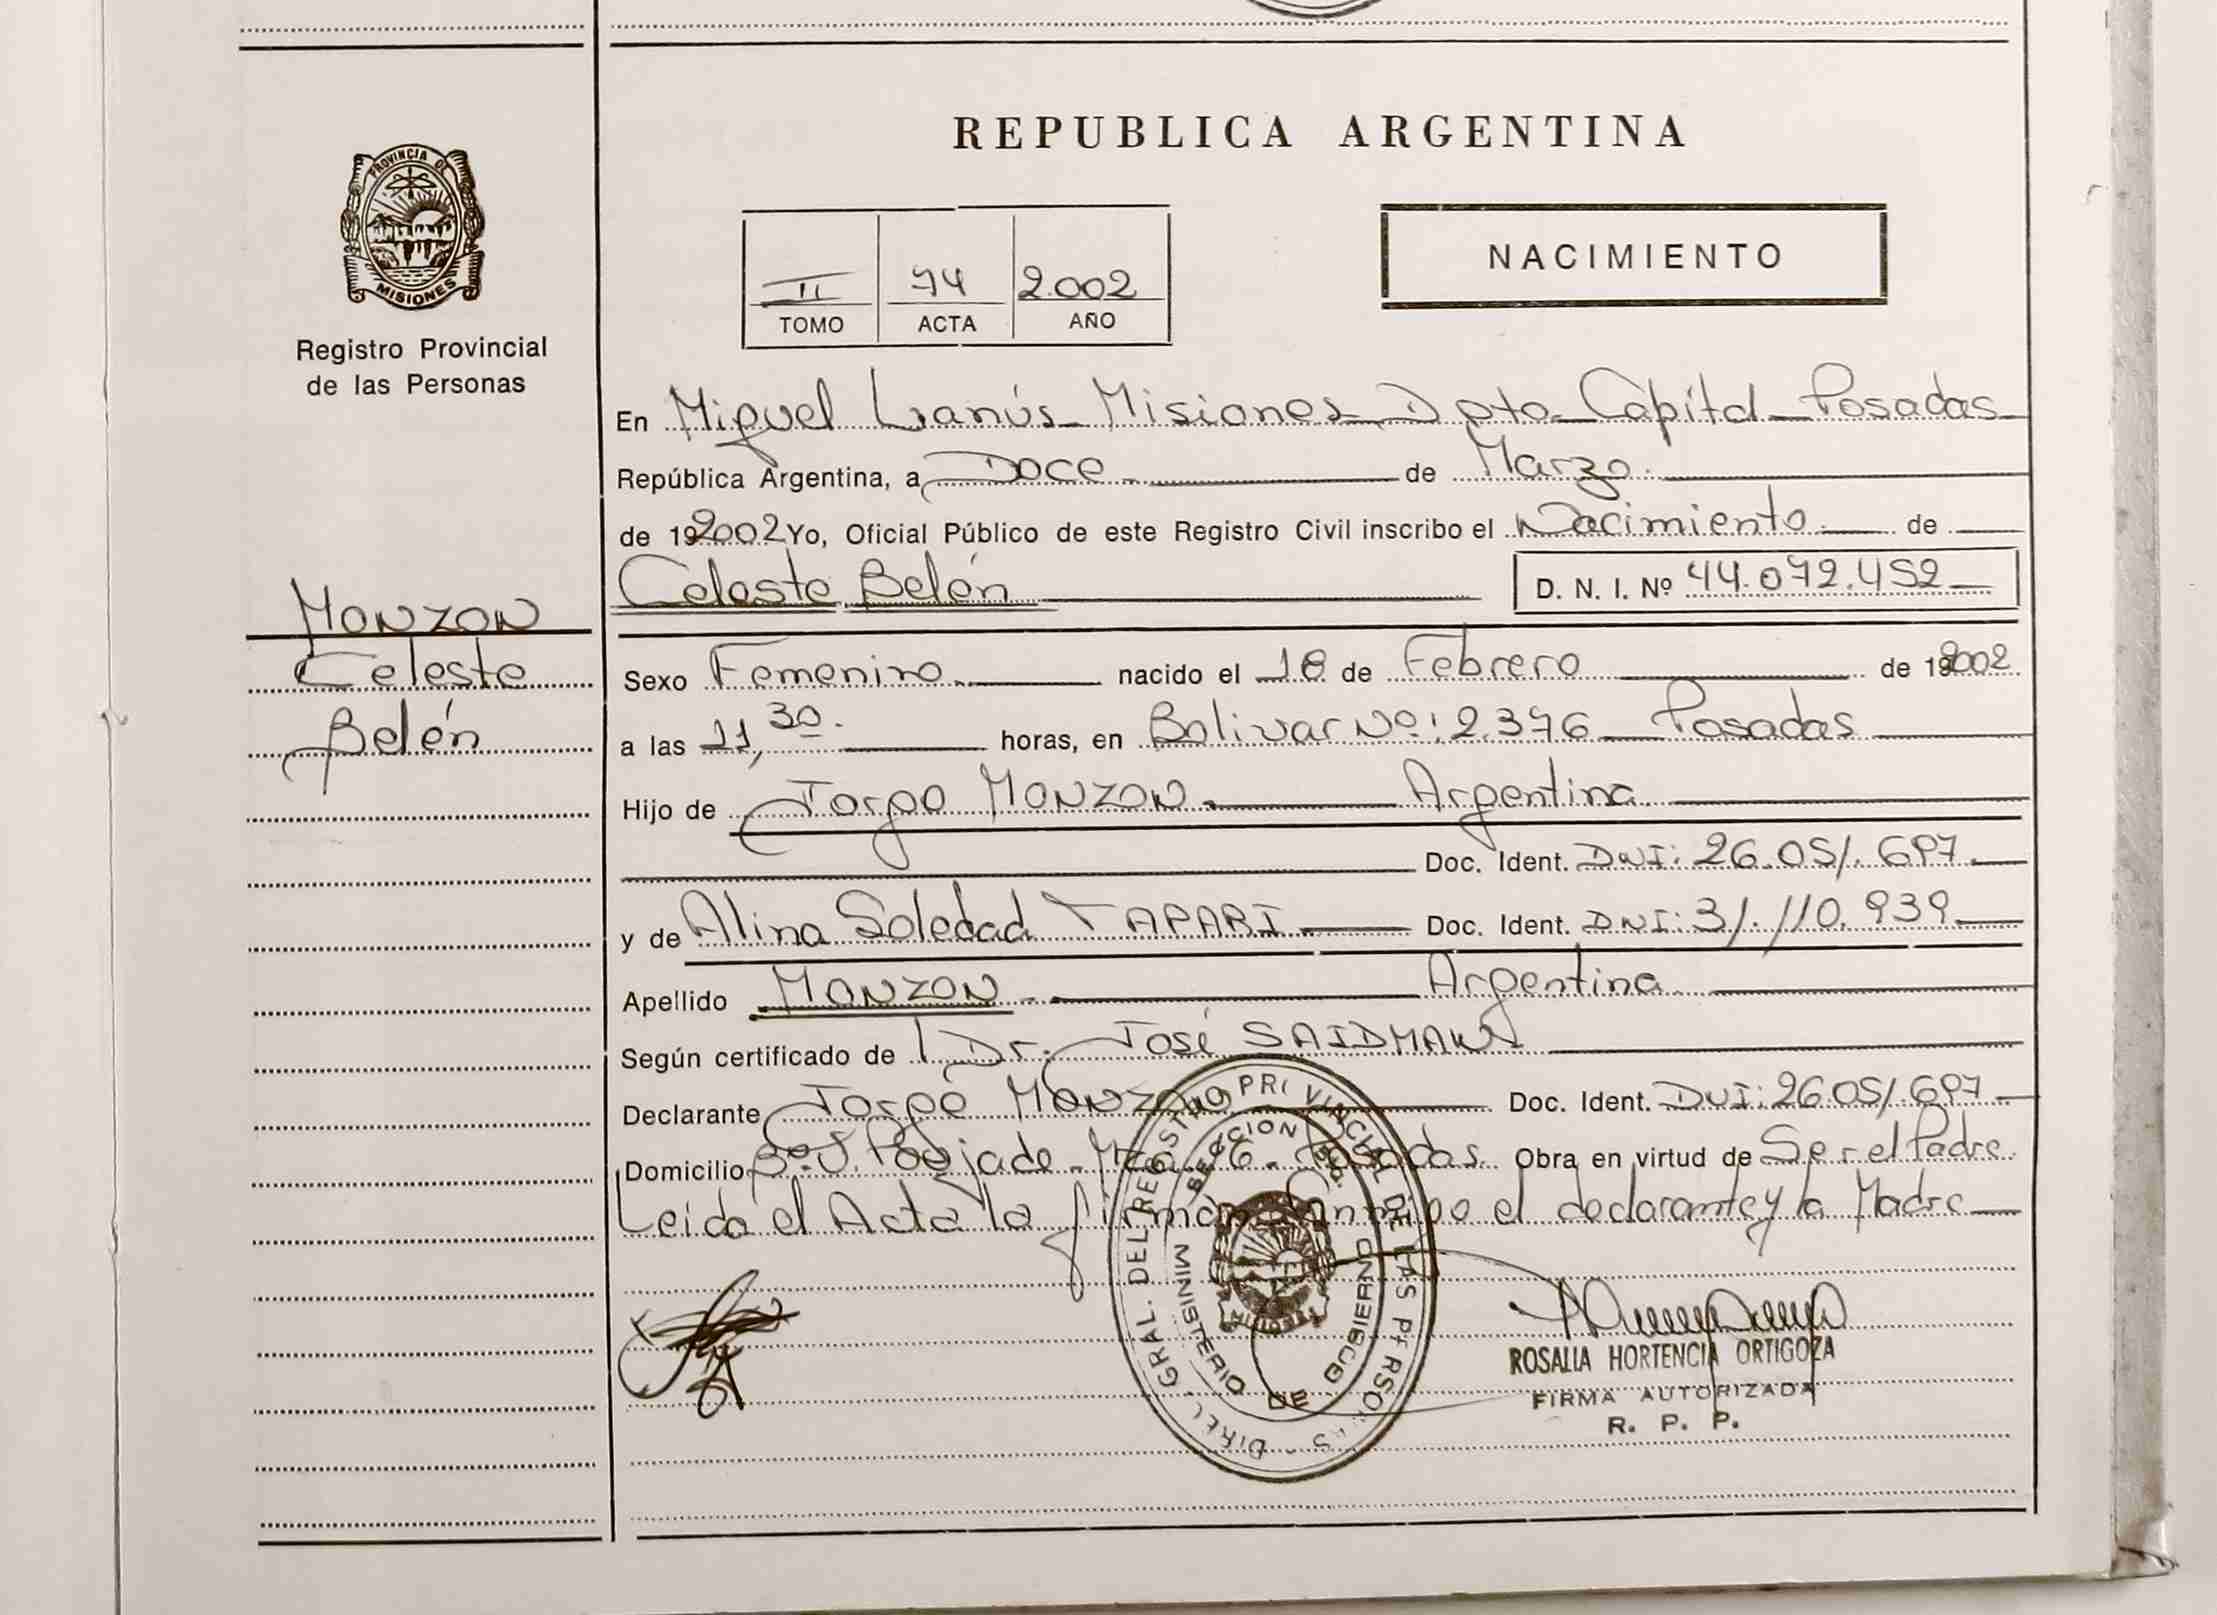 REPUBLICA ARGENTINA
PROVINCIA DE
MISIONES
Registro Provincial
de las Personas
NACIMIENTO
II 74 2.002
TOMO ACTA AÑO
En Miguel Lanús Misiones Dpto Capital Posadas
República Argentina, a Doce de Marzo
de 192002 Yo, Oficial Público de este Registro Civil inscribo el Nacimiento de
Celeste Belén D. N. I. Nº 44.072.452
MONZON
Celeste
Belén
Sexo Femenino nacido el 18 de Febrero de 192002
a las 11,30 horas, en Bolivar Nº: 2.376 Posadas
Hijo de Jorge MONZON Argentina
Doc. Ident. DNI: 26.051.697
y de Alina Soledad TAPARI Doc. Ident. DNI: 31.110.939
Apellido MONZON Argentina
Según certificado de Dr. José SAIDMAN
Declarante Jorge MONZON Doc. Ident. DNI: 26.051.697
Domicilio Posadas Obra en virtud de Ser el Padre
Leida el Acta la firman conmigo el declarante y la Madre
DIREC. GRAL. DEL REGISTRO PROVINCIAL DE LAS PERSONAS
SECCION
MINISTERIO DE GOBIERNO
ROSALIA HORTENCIA ORTIGOZA
FIRMA AUTORIZADA
R. P. P.